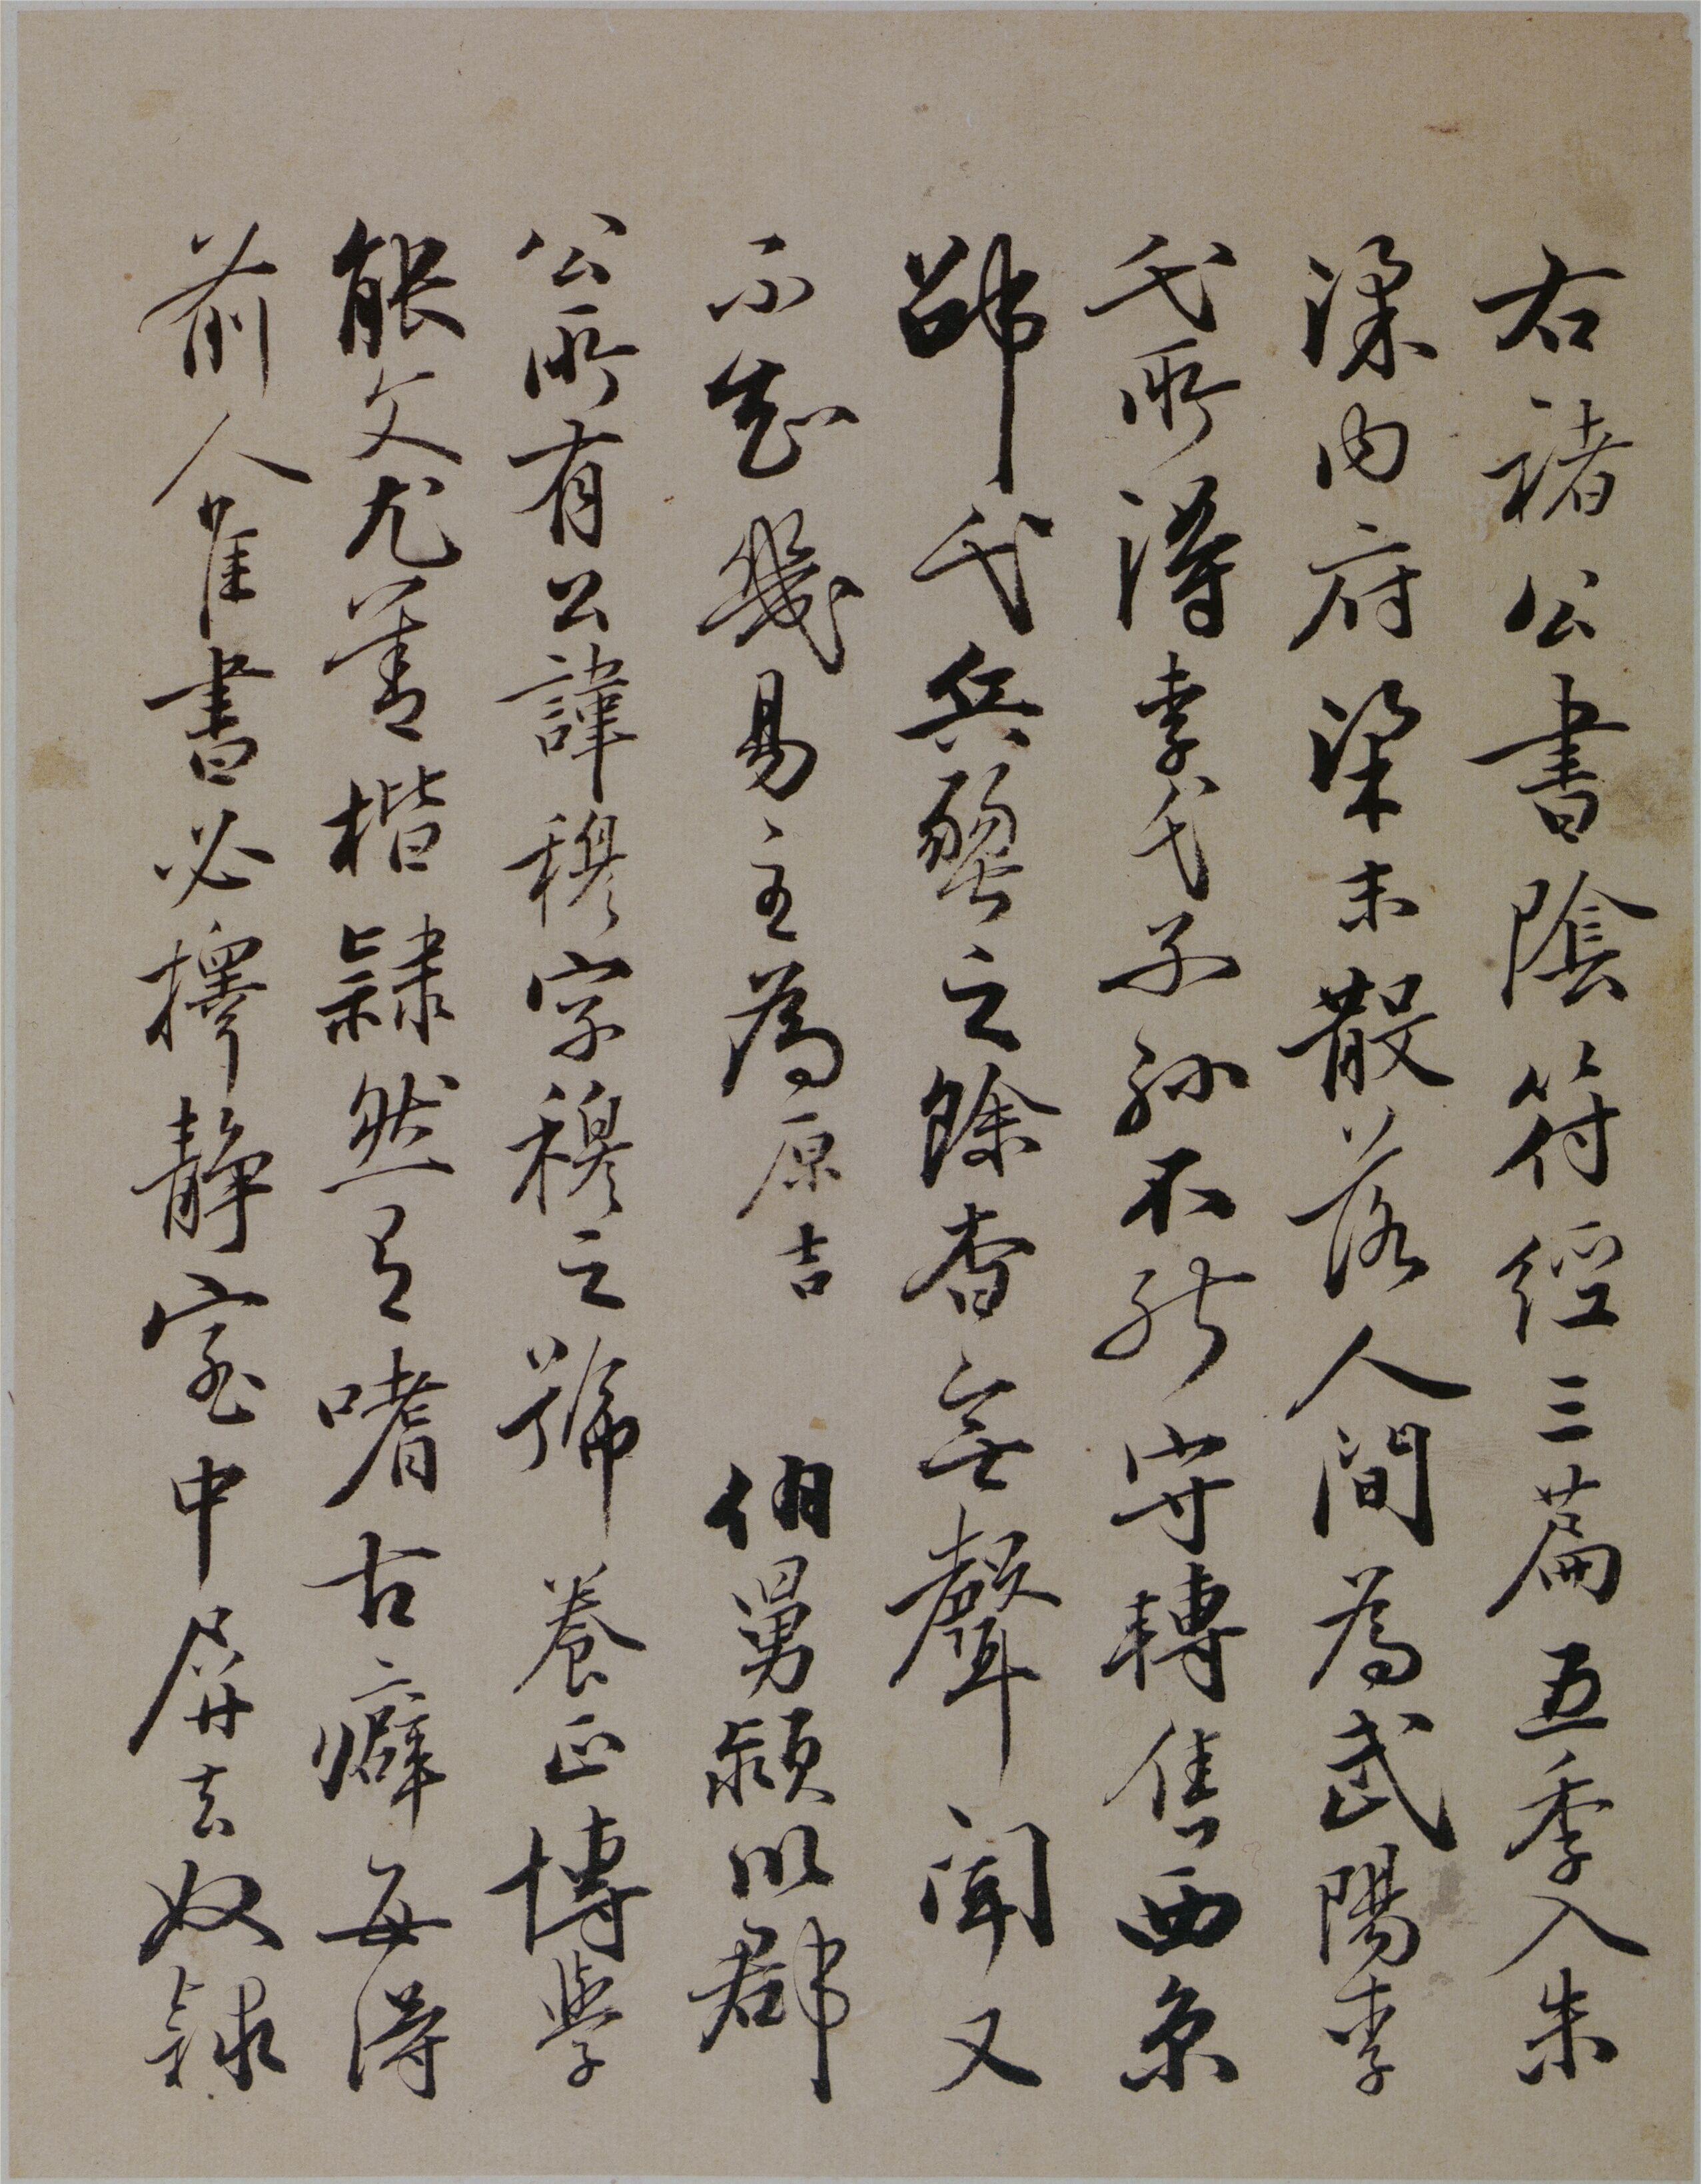 右褚公書陰符經三篇五季入朱
梁內府梁末散落人間為武陽李
氏所得李氏子孫不能守轉售西京
邵氏兵燹之餘杳無聲聞又
不知幾易主為原吉 伯舅潁川郡
公所有公諱穆字穆之號養正博學
能文尤善楷隸然又嗜古癖每得
前人佳書必擇靜室中屏去奴隸